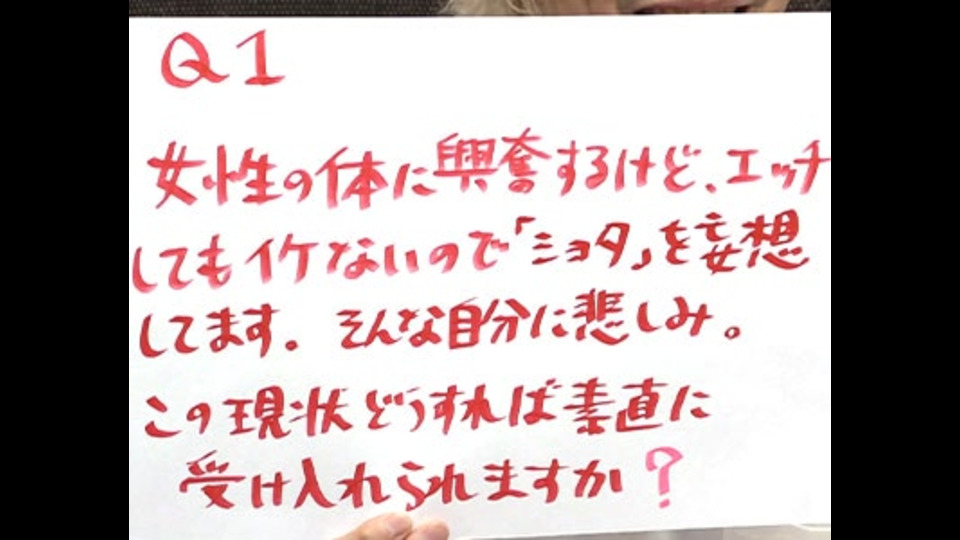 Q1
女性の体に興奮するけど、エッチ
してもイケないので「ショタ」を妄想
してます。そんな自分に悲しみ。
この現状どうすれば素直に
受け入れられますか?